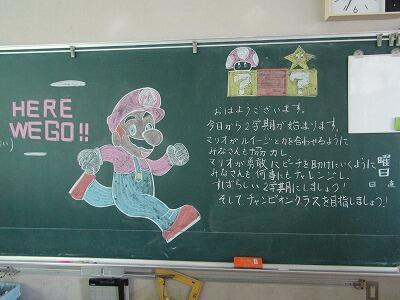 HERE
WE GO!!
? ?
おはようございます。
今日から2学期が始まります。
マリオがルイージと力を合わせるように
みなさんも協力し、
マリオが勇敢にピーチを助けにいくように
みなさんも何事にもチャレンジし、
すばらしい2学期にしましょう!
そしてチャンピオンクラスを目指しましょう!
曜
日
日 直